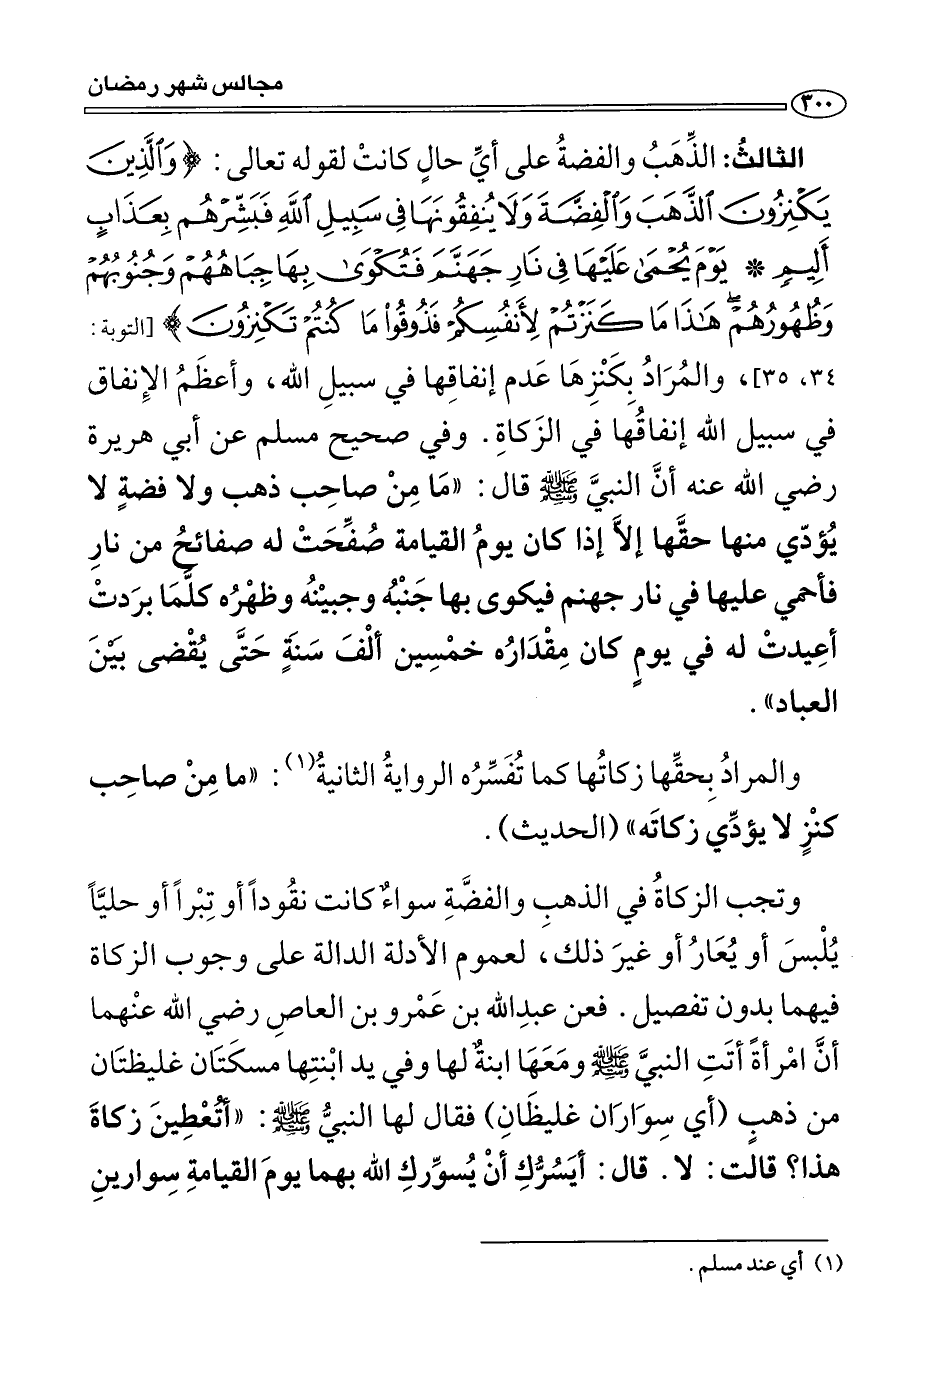 مجالس شهر رمضان
٣٠٠
الثالثُ: الذَّهَبُ والفضةُ على أيِّ حالٍ كانتْ لقوله تعالى: ﴿وَٱلَّذِينَ
يَكْنِزُونَ ٱلذَّهَبَ وَٱلْفِضَّةَ وَلَا يُنفِقُونَهَا فِى سَبِيلِ ٱللَّهِ فَبَشِّرْهُم بِعَذَابٍ
أَلِيمٍ * يَوْمَ يُحْمَىٰ عَلَيْهَا فِى نَارِ جَهَنَّمَ فَتُكْوَىٰ بِهَا جِبَاهُهُمْ وَجُنُوبُهُمْ
وَظُهُورُهُمْ ۖ هَٰذَا مَا كَنَزْتُمْ لِأَنفُسِكُمْ فَذُوقُوا۟ مَا كُنتُمْ تَكْنِزُونَ﴾ [التوبة:
٣٤، ٣٥]، والمُرَادُ بِكَنْزِهَا عَدم إنفاقِها في سبيلِ الله، وأعظَمُ الإِنفاق
في سبيل الله إنفاقُها في الزَكاةِ. وفي صحيح مسلم عن أبي هريرة
رضي الله عنه أنَّ النبيَّ ﷺ قال: «مَا مِنْ صاحِب ذهب ولا فضةٍ لا
يُؤدّي منها حقَّها إلاَّ إذا كان يومُ القيامة صُفِّحَتْ له صفائحُ من نارِ
فأحمي عليها في نار جهنم فيكوى بها جَنْبُهُ وجبيْنُه وظهْرُه كلَّمَا بردتْ
أعِيدتْ له في يومٍ كان مِقْدَارُه خمْسِين ألْفَ سَنَةٍ حَتَّى يُقْضى بَيْنَ
العباد».
والمرادُ بِحقِّها زكاتُها كما تُفَسِّرُه الروايةُ الثانيةُ(١): «ما مِنْ صاحِب
كنْزٍ لا يؤدِّي زكاتَه» (الحديث).
وتجب الزكاةُ في الذهبِ والفضَّةِ سواءٌ كانت نقُوداً أو تِبْراً أو حليَّاً
يُلْبسَ أو يُعَارُ أو غيرَ ذلك، لعموم الأدلة الدالة على وجوب الزكاة
فيهما بدون تفصيل. فعن عبدِالله بن عَمْرو بن العاصِ رضي الله عنْهما
أنَّ امْرأةً أتَتِ النبيَّ ﷺ ومَعَهَا ابنةٌ لها وفي يد ابْنتِها مسكَتَان غليظتَان
من ذهبٍ (أي سِوارَان غليظَانِ) فقال لها النبيُّ ﷺ: «أتُعْطِينَ زكاةَ
هذا؟ قالت: لا. قال: أيَسُرُّكِ أنْ يُسوِّركِ الله بهما يومَ القيامةِ سِوارينِ
(١) أي عند مسلم.